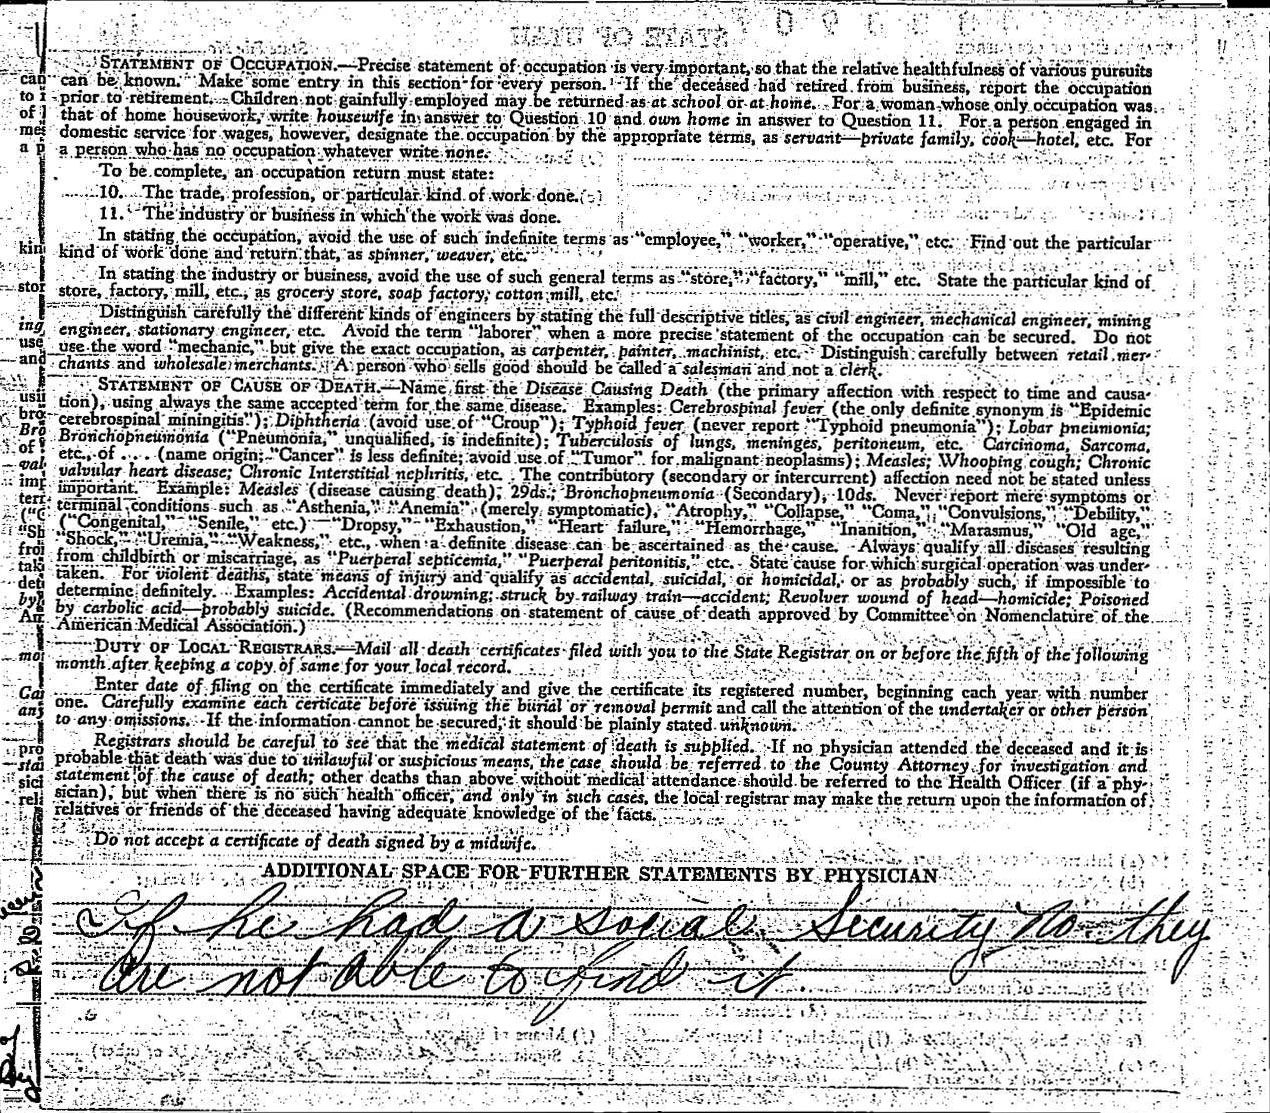 STATE OF UTAH
STATEMENT OF OCCUPATION.—Precise statement of occupation is very important, so that the relative healthfulness of various pursuits
can be known. Make some entry in this section for every person. If the deceased had retired from business, report the occupation
prior to retirement. Children not gainfully employed may be returned as at school or at home. For a woman whose only occupation was
that of home housework, write housewife in answer to Question 10 and own home in answer to Question 11. For a person engaged in
domestic service for wages, however, designate the occupation by the appropriate terms, as servant—private family, cook—hotel, etc. For
a person who has no occupation whatever write none.
To be complete, an occupation return must state:
10. The trade, profession, or particular kind of work done.
11. The industry or business in which the work was done.
In stating the occupation, avoid the use of such indefinite terms as "employee," "worker," "operative," etc. Find out the particular
kind of work done and return that, as spinner, weaver, etc.
In stating the industry or business, avoid the use of such general terms as "store," "factory," "mill," etc. State the particular kind of
store, factory, mill, etc., as grocery store, soap factory, cotton mill, etc.
Distinguish carefully the different kinds of engineers by stating the full descriptive titles, as civil engineer, mechanical engineer, mining
engineer, stationary engineer, etc. Avoid the term "laborer" when a more precise statement of the occupation can be secured. Do not
use the word "mechanic," but give the exact occupation, as carpenter, painter, machinist, etc. Distinguish carefully between retail mer-
chants and wholesale merchants. A person who sells good should be called a salesman and not a clerk.
STATEMENT OF CAUSE OF DEATH.—Name first the Disease Causing Death (the primary affection with respect to time and causa-
tion), using always the same accepted term for the same disease. Examples: Cerebrospinal fever (the only definite synonym is "Epidemic
cerebrospinal miningitis"); Diphtheria (avoid use of "Croup"); Typhoid fever (never report "Typhoid pneumonia"); Lobar pneumonia;
Bronchopneumonia ("Pneumonia," unqualified, is indefinite); Tuberculosis of lungs, meninges, peritoneum, etc. Carcinoma, Sarcoma,
etc., of .... (name origin; "Cancer" is less definite; avoid use of "Tumor" for malignant neoplasms); Measles; Whooping cough; Chronic
valvular heart disease; Chronic Interstitial nephritis, etc. The contributory (secondary or intercurrent) affection need not be stated unless
important. Example: Measles (disease causing death), 29ds.; Bronchopneumonia (Secondary), 10ds. Never report mere symptoms or
terminal conditions such as "Asthenia," "Anemia" (merely symptomatic), "Atrophy," "Collapse," "Coma," "Convulsions," "Debility,"
("Congenital," "Senile," etc.) "Dropsy," "Exhaustion," "Heart failure," "Hemorrhage," "Inanition," "Marasmus," "Old age,"
"Shock," "Uremia," "Weakness," etc., when a definite disease can be ascertained as the cause. Always qualify all diseases resulting
from childbirth or miscarriage, as "Puerperal septicemia," "Puerperal peritonitis," etc. State cause for which surgical operation was under-
taken. For violent deaths, state means of injury and qualify as accidental, suicidal, or homicidal, or as probably such, if impossible to
determine definitely. Examples: Accidental drowning; struck by railway train—accident; Revolver wound of head—homicide; Poisoned
by carbolic acid—probably suicide. (Recommendations on statement of cause of death approved by Committee on Nomenclature of the
American Medical Association.)
DUTY OF LOCAL REGISTRARS.—Mail all death certificates filed with you to the State Registrar on or before the fifth of the following
month after keeping a copy of same for your local record.
Enter date of filing on the certificate immediately and give the certificate its registered number, beginning each year with number
one. Carefully examine each certicate before issuing the burial or removal permit and call the attention of the undertaker or other person
to any omissions. If the information cannot be secured, it should be plainly stated unknown.
Registrars should be careful to see that the medical statement of death is supplied. If no physician attended the deceased and it is
probable that death was due to unlawful or suspicious means, the case should be referred to the County Attorney for investigation and
statement of the cause of death; other deaths than above without medical attendance should be referred to the Health Officer (if a phy-
sician), but when there is no such health officer, and only in such cases, the local registrar may make the return upon the information of
relatives or friends of the deceased having adequate knowledge of the facts.
Do not accept a certificate of death signed by a midwife.
ADDITIONAL SPACE FOR FURTHER STATEMENTS BY PHYSICIAN
If he had a social Security No. they
are not able to find it.